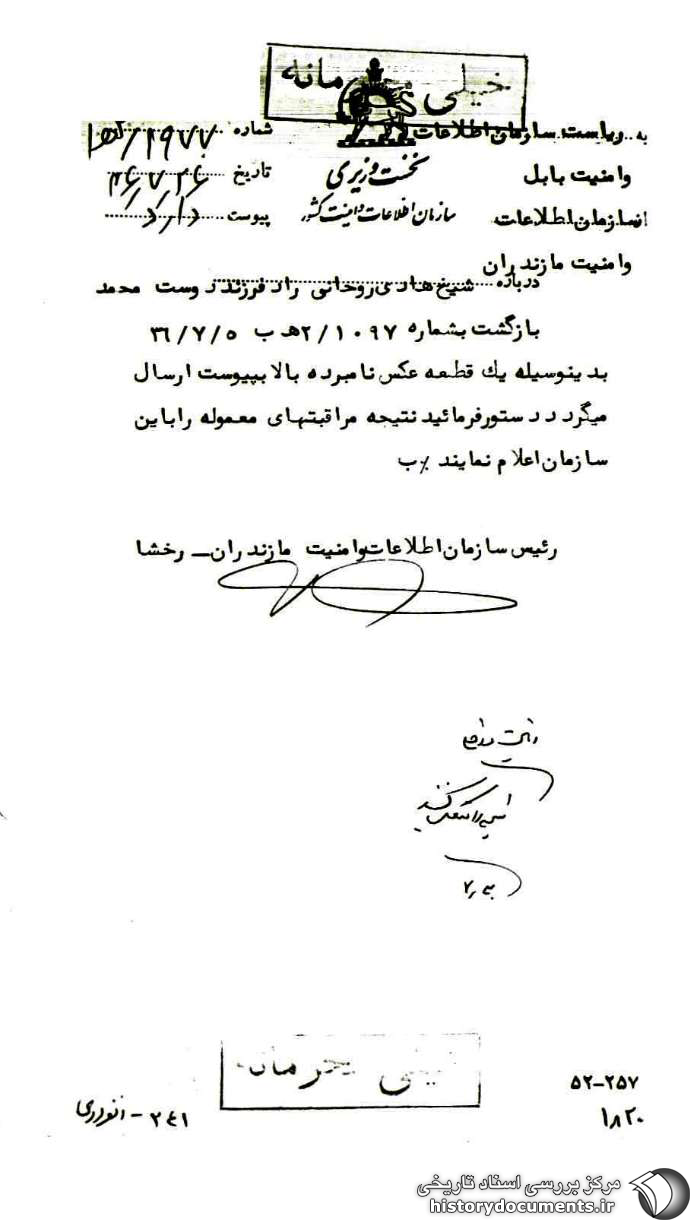 خیلی محرمانه
به ریاست سازمان اطلاعات
وامنیت بابل
ازسازمان اطلاعات
وامنیت مازندران
نخست وزیری
سازمان اطلاعات وامنیت کشور
شماره
تاریخ ۳۶/۷/۲۶
پیوست دارد
درباره شیخ هادی روحانی راد فرزند دوست محمد
بازگشت بشماره ۲/۱۰۹۷هـ ب ۳۶/۷/۵
بدینوسیله یك قطعه عکس نامبرده بالا بپیوست ارسال
میگردد دستورفرمائید نتیجه مراقبتهای معموله راباین
سازمان اعلام نمایند ٪ب
رئیس سازمان اطلاعات وامنیت مازندران ــ رخشا
خیلی محرمانه
۵۲-۲۵۷
۱۸۲۰
۲٤۱ -
مرکز بررسی اسناد تاریخی
historydocuments.ir